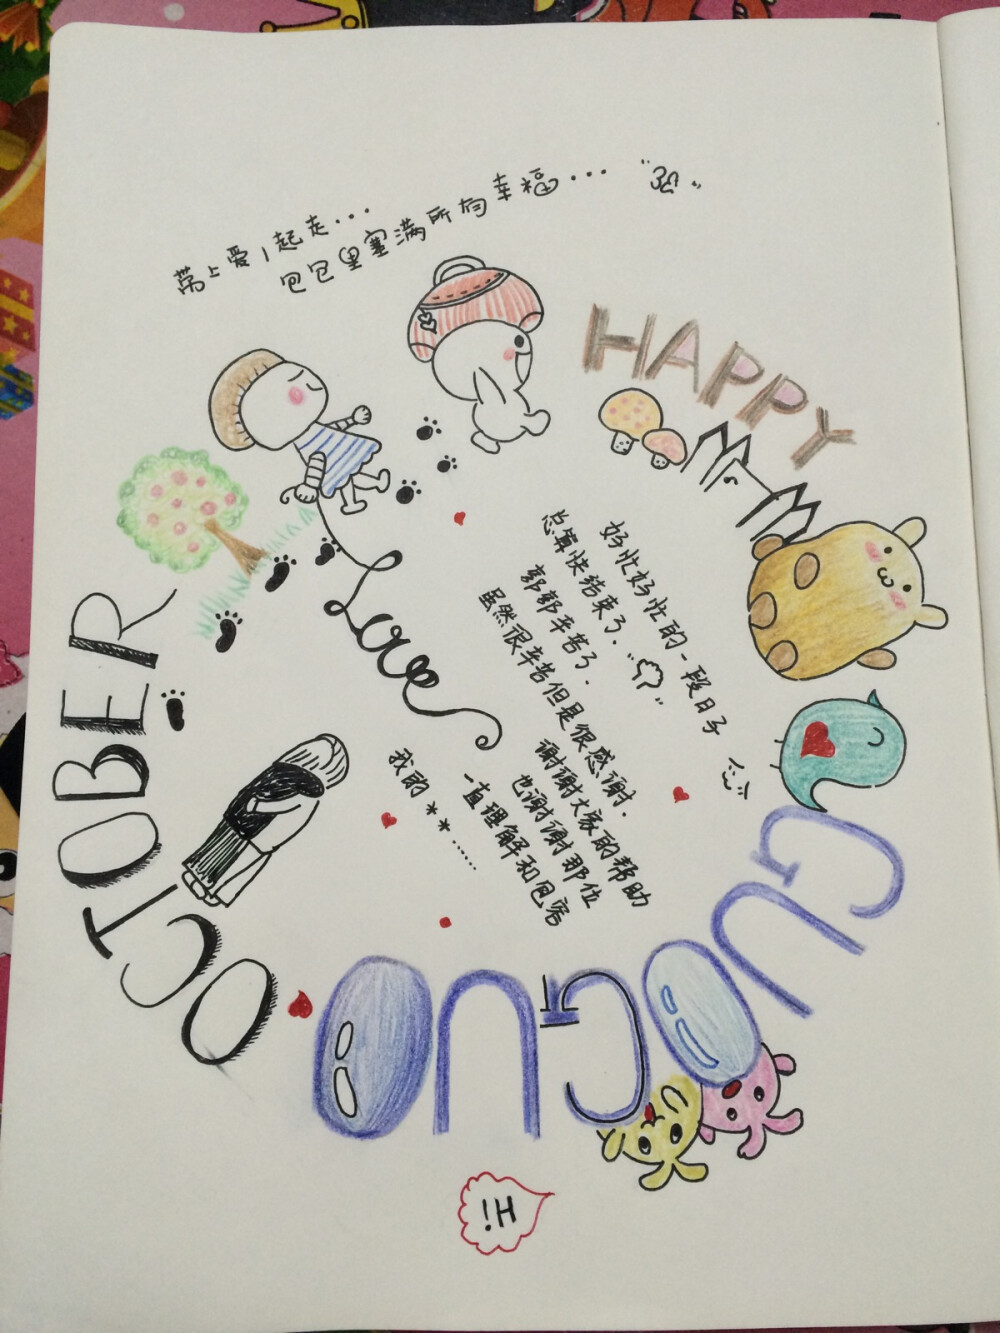 带上爱,一起走...
包包里塞满所有幸福...
HAPPY
好忙好忙的一段日子
总算快结束了.
郭郭辛苦了.
虽然很辛苦但是很感谢.
谢谢大家的帮助
也谢谢那位
一直理解和包容
我的**......
Love
GUO
GUO
OCTOBER
Hi!